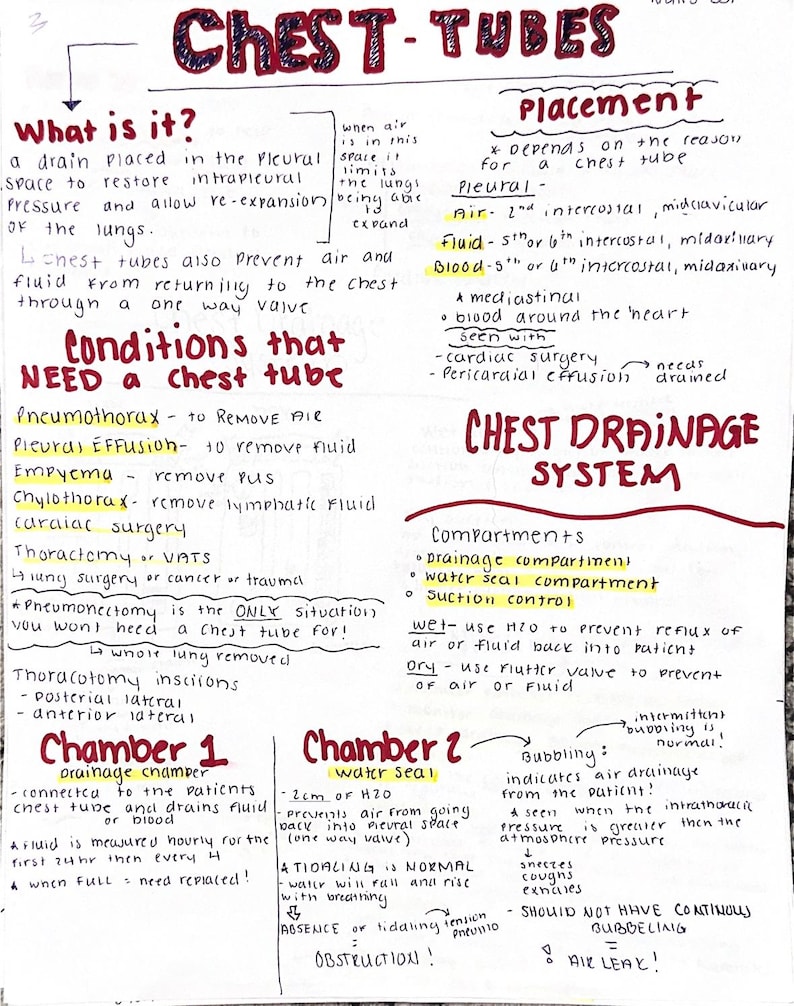 3
CHEST-TUBES
What is it?
a drain placed in the Pleural
space to restore intrapleural
Pressure and allow re-expansion
of the lungs.
when air
is in this
space it
limits
the lungs
being able
to
expand
↳ Chest tubes also prevent air and
fluid from returning to the chest
through a one way valve
Placement
* Depends on the reason
for a chest tube
Pleural -
Air - 2nd intercostal, midclavicular
Fluid - 5th or 6th intercostal, midaxillary
Blood - 5th or 6th intercostal, midaxillary
* mediastinal
• blood around the heart
seen with
- cardiac surgery
- Pericardial effusion → needs
drained
Conditions that
NEED a chest tube
Pneumothorax - to REMOVE AIR
Pleural Effusion - to remove fluid
Empyema - remove pus
Chylothorax - remove lymphatic fluid
cardiac surgery
Thoractomy or VATS
↳ lung surgery or cancer or trauma
*Pneumonectomy is the ONLY situation
you wont need a chest tube for!
↳ whole lung removed
Thoracotomy insciions
- posterial lateral
- anterior lateral
CHEST DRAINAGE
SYSTEM
Compartments
• Drainage compartment
• water seal compartment
• suction control
wet - use H2O to prevent reflux of
air or fluid back into patient
Dry - use flutter valve to prevent
of air or fluid
Chamber 1
Drainage chamber
- connected to the patients
chest tube and drains fluid
or blood
* Fluid is measured hourly for the
first 24hr then every 4
* when full = need replaced!
Chamber 2
water seal
- 2cm of H2O
- prevents air from going
back into pleural space
(one way valve)
* TIDALING is NORMAL
- water will fall and rise
with breathing
⇓
ABSENCE of tidaling → tension
pneumo
=
OBSTRUCTION!
Bubbling: → intermittent
bubbling is
normal!
indicates air drainage
from the patient!
* seen when the intrathoracic
pressure is greater then the
atmosphere pressure
↓
sneezes
coughs
exhales
- SHOULD NOT HAVE CONTINOUS
BUBBELING
=
AIR LEAK!